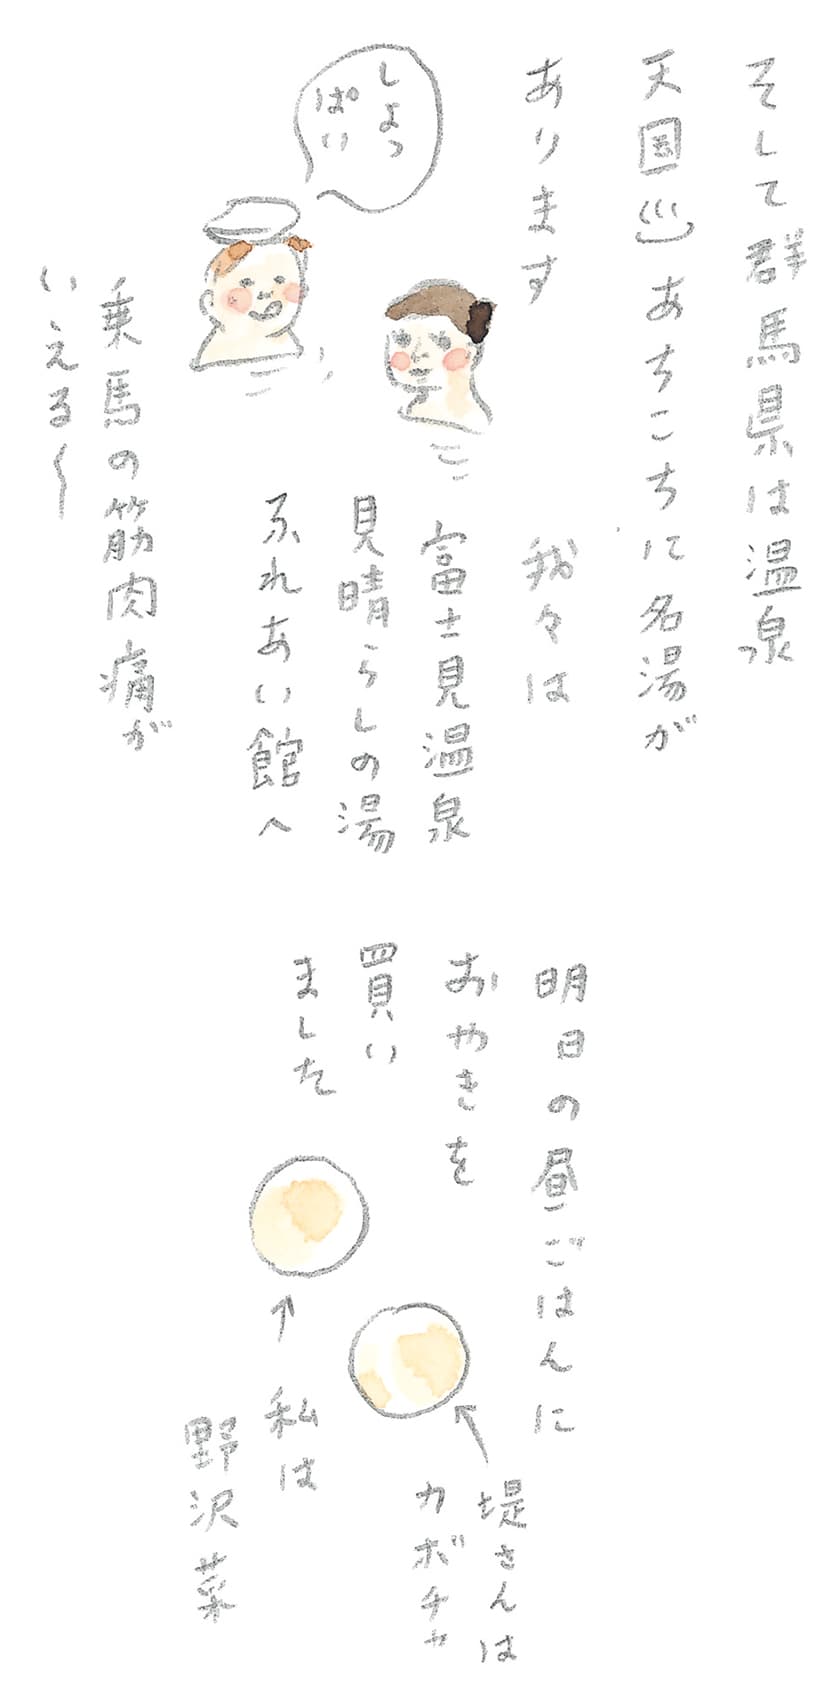 そして群馬県は温泉
天国♨あちこちに名湯が
あります
しょっ
ぱい
我々は
富士見温泉
見晴らしの湯
ふれあい館へ
乗馬の筋肉痛が
いえる〜
明日の昼ごはんに
おやきを
買い
ました
堤さんは
カボチャ
私は
野沢菜